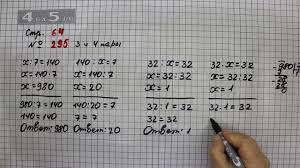 4 x 5
Стр. 64
№ 295 3 и 4 пары
x:7=140 140:x=7 32:x=32 32:x=32
x=140·7 x=140:7 x=32:32 x=32:32
x=980 x=20 x=1 x=1
980:7=140 140:20=7 32:1=32 32:1=32
140=140 7=7 32=32
Ответ:980 Ответ:20 Ответ:1